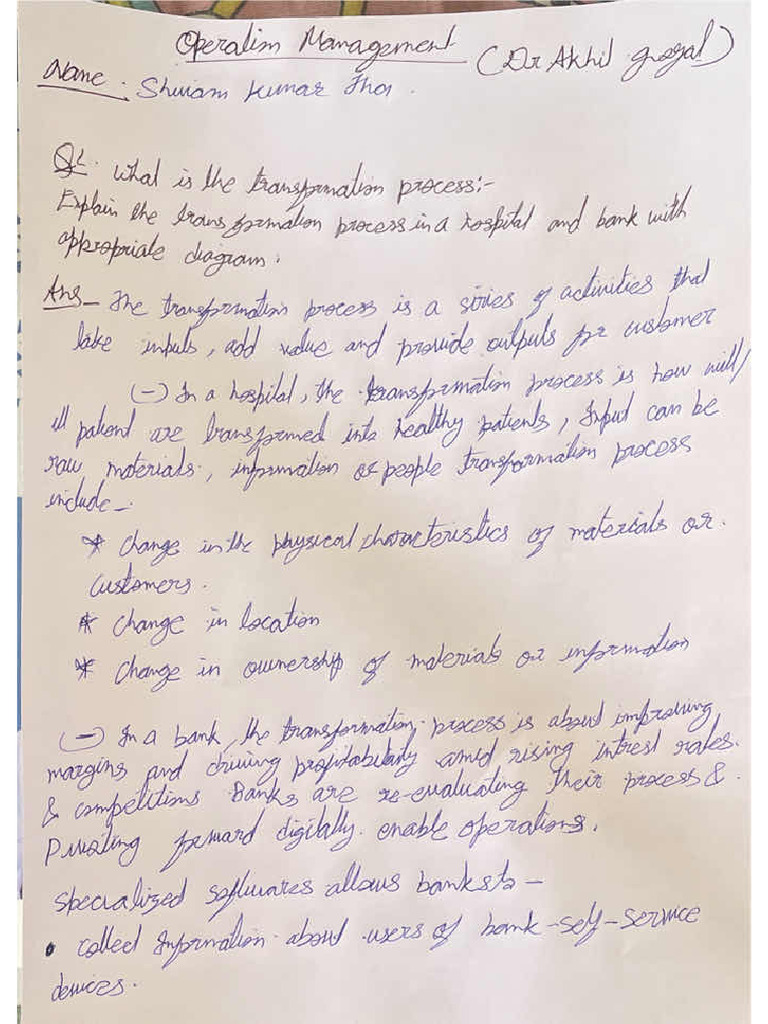 Operation Management (Dr Akhil Goyal)
Name - Shivam Kumar Jha.
Q1. What is the transformation process:-
Explain the transformation process in a hospital and bank with
appropriate diagram.
Ans- The transformation process is a series of activities that
take inputs, add value and provide outputs for customer
(-) In a hospital, the transformation process is how will/
ill patient are transformed into healthy patients, Input can be
raw materials, information or people transformation process
include-
* Change in the physical characteristics of materials or
customers.
* Change in location
* Change in ownership of materials or information
(-) In a bank, the transformation process is about improving
margins and driving profitabilaty amid rising intrest rates.
& competitions Banks are re-evaluating their process &
Pivoting forward digitally enable operations.
Specialized softwares allows banks to -
• collect Information about users of bank-self-service
devices.